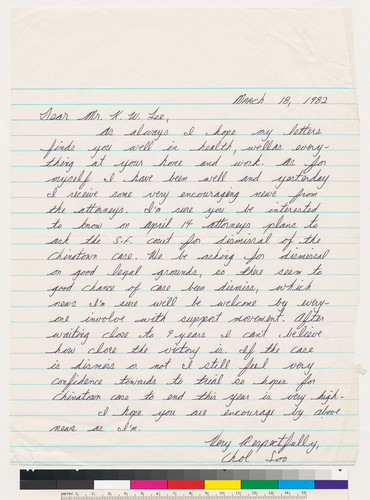 March 18, 1982
Dear Mr. K. W. Lee,
As always I hope my letters
finds you well in health, wellas every-
thing at your home and work. As for
myself I have been well and yesterday
I receive some very encouraging news from
the attorneys. I'm sure you be interested
to know on April 14 attorneys plans to
ask the S.F. court for dismissal of the
Chinatown case. We be asking for dismissal
on good legal grounds, so there seem to
good chance of case been dismiss, which
news I'm sure will be welcome by every-
one involve with support movement. After
waiting close to 9 years I can't believe
how close the victory is. If the case
is dismiss or not I still feel very
confidence towards to trial so hopes for
Chinatown case to end this year is very high.
I hope you are encourage by above
news as I'm.
Very Respectfully,
Chol Soo